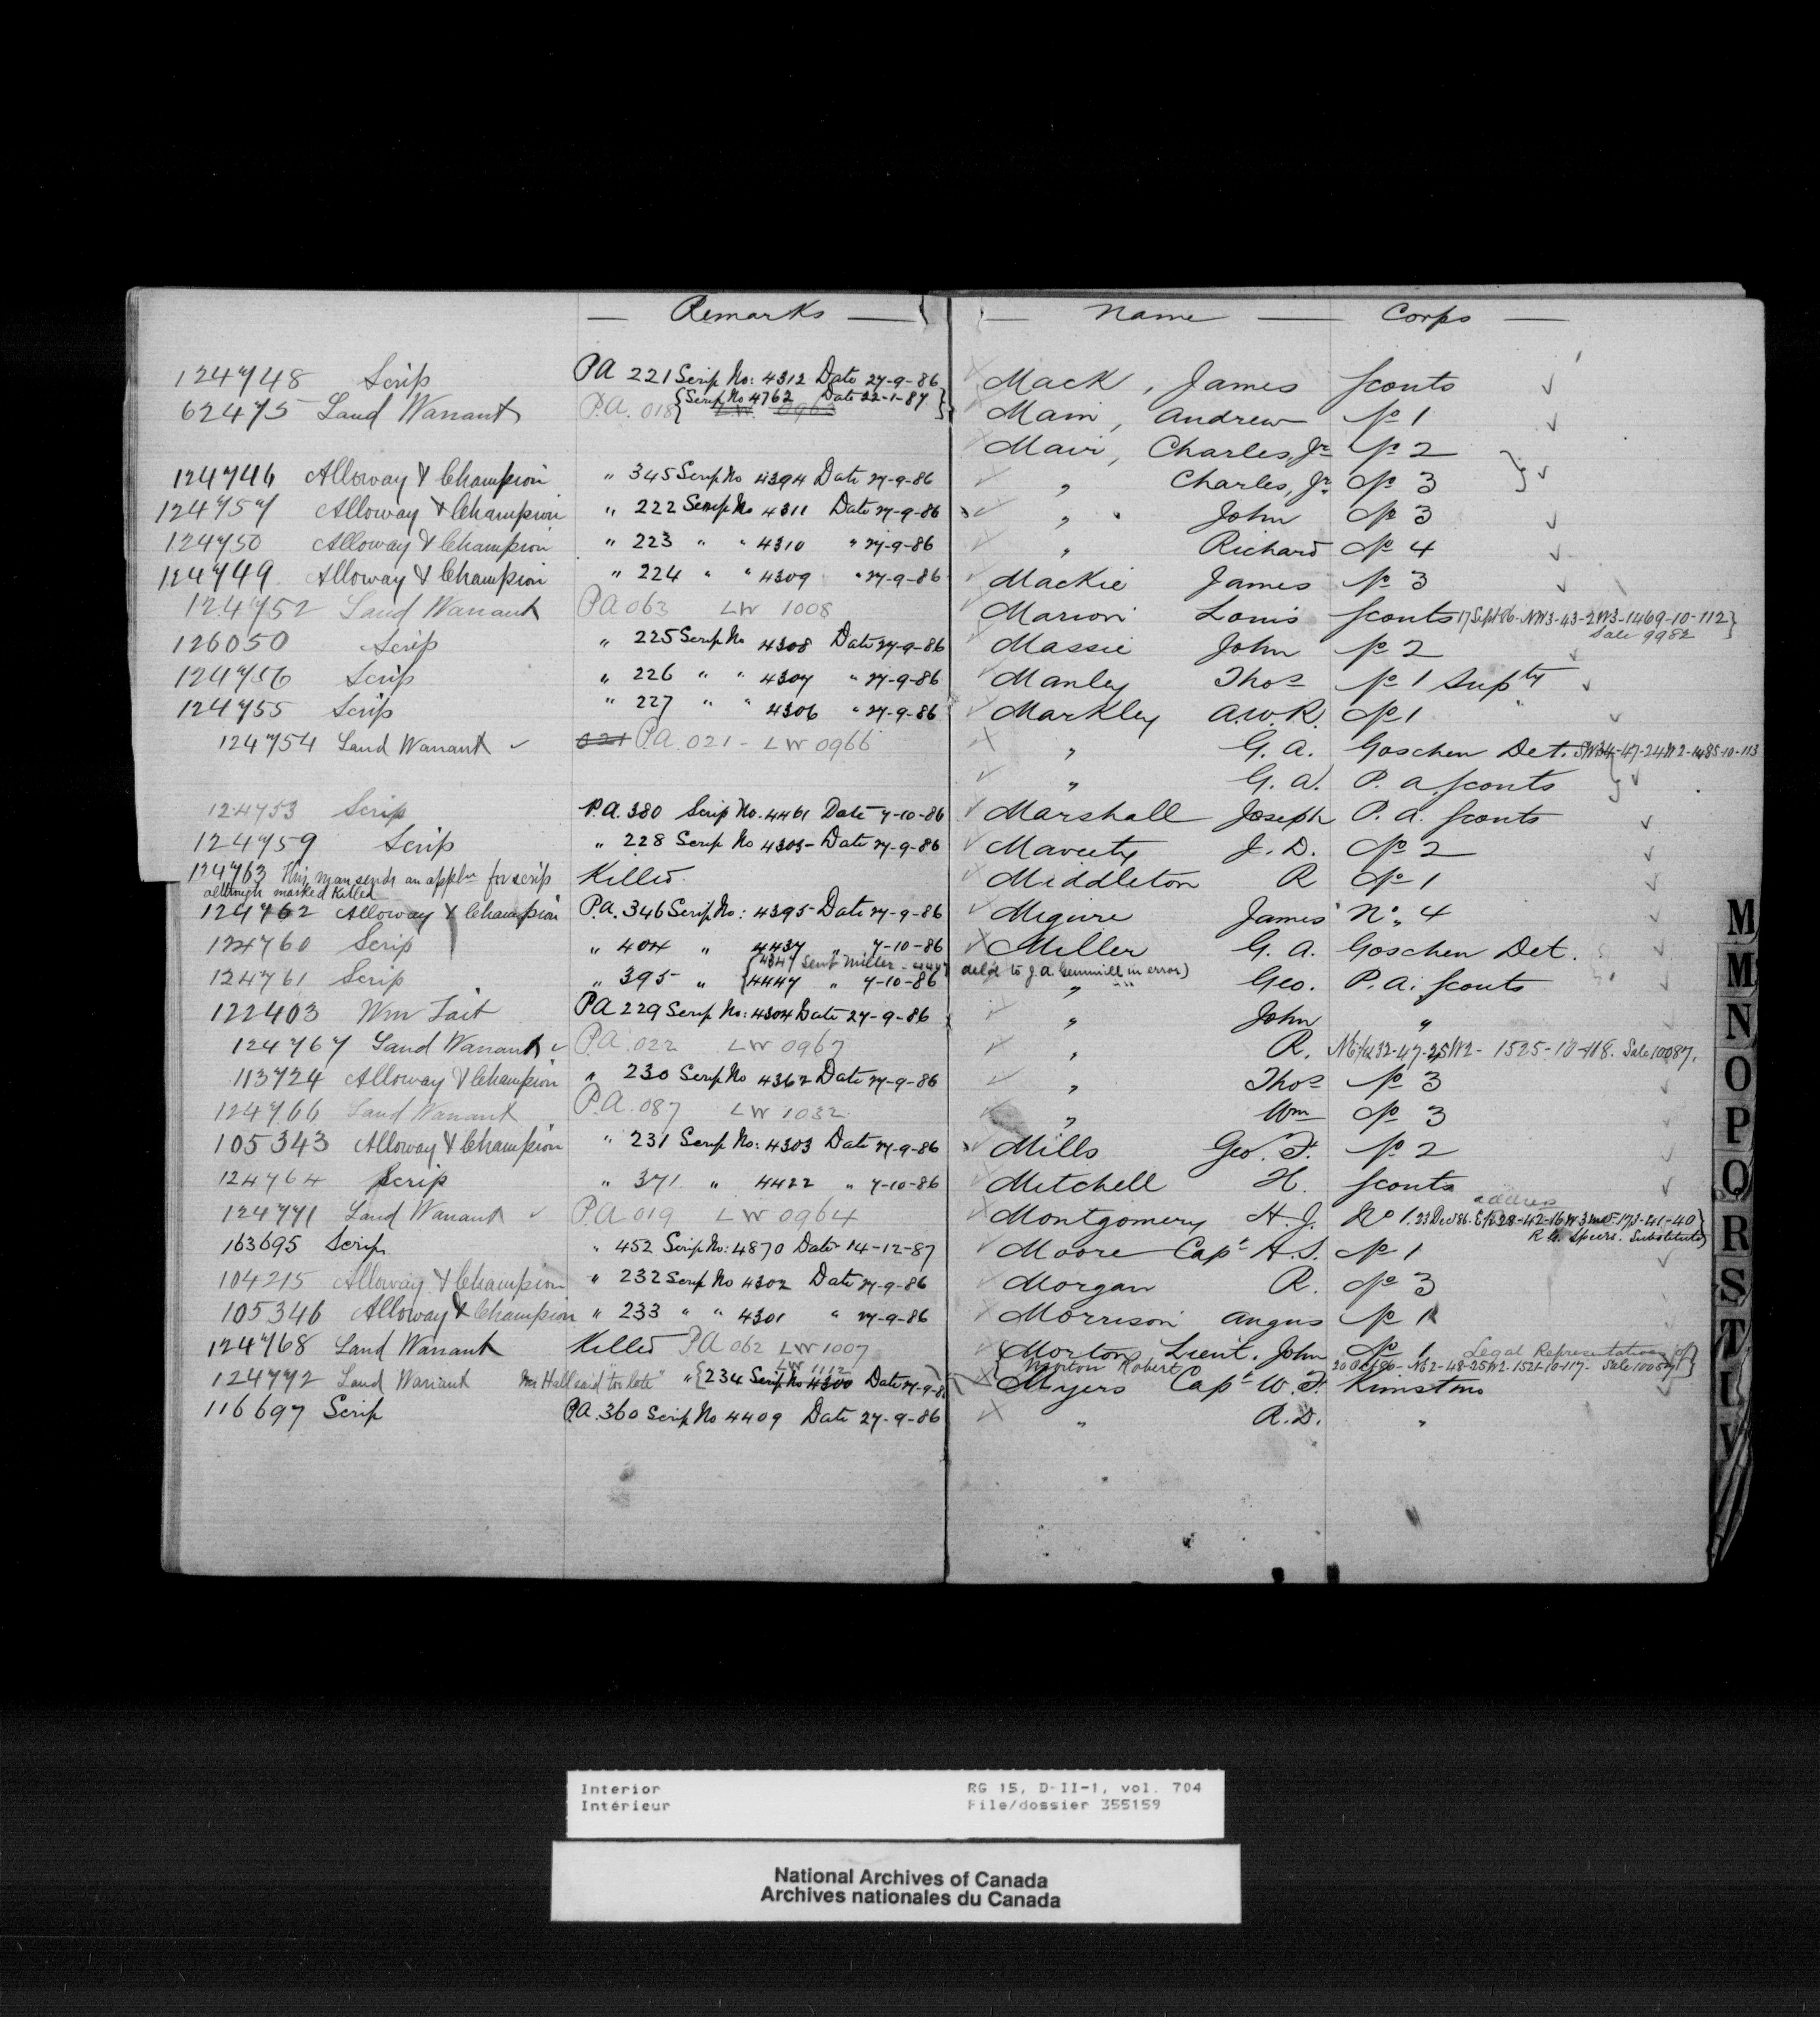 — Remarks —
— Name — Corps —
124748 Scrip PA 221 Scrip No: 4312 Date 27-9-86 Mack, James Scouts
62475 Land Warrant P.A. 018 {Scrip No 4762 Date 22-1-87} LW 0963 Main, Andrew No 1
Mair, Charles, Jr No 2
124746 Alloway & Champion " 345 Scrip No 4394 Date 27-9-86 " Charles, Jr. No 3
124757 Alloway & Champion " 222 Scrip No 4311 Date 27-9-86 " John No 3
124750 Alloway & Champion " 223 " " 4310 " 27-9-86 " Richard No 4
124749 Alloway & Champion " 224 " " 4309 " 27-9-86 Mackie James No 3
124752 Land Warrant PA 063 LW 1008 Marion Louis Scouts 17 Sept 86-NW3-43-2W3-1469-10-112}
Sale 9982
126050 Scrip " 225 Scrip No 4308 Date 27-9-86 Massie John No 2
124756 Scrip " 226 " " 4307 " 27-9-86 Manley Thos No 1 Supty
124755 Scrip " 227 " " 4306 " 27-9-86 Markley A.W.R. No 1
124754 Land Warrant 021 PA. 021 - LW 0966 " G. A. Goschen Det. SW34-47-24W2-1485-10-113
" G. A. P. A. Scouts
124753 Scrip P.A. 380 Scrip No. 4461 Date 7-10-86 Marshall Joseph P. A. Scouts
124759 Scrip " 228 Scrip No 4305- Date 27-9-86 Maveety J. D. No 2
124763 This man sends an appln for scrip Killed. Middleton R No 1
although marked Killed
124762 Alloway & Champion P.A. 346 Scrip No: 4395- Date 27-9-86 Meguire James No. 4
124760 Scrip " 404 " 4437 " 7-10-86 Miller G. A. Goschen Det.
{4347 Sent Miller - 4447 deld to J. A. Gemmill in error)
124761 Scrip " 395- " {4447 " 7-10-86 " Geo. P. A. Scouts
122403 Wm Tait PA 229 Scrip No: 4304 Date 27-9-86 " John "
124767 Land Warrant PA. 022 LW 0967 " R. N E 1/4 32-47-25W2- 1525-10-118. Sale 10087.
113724 Alloway & Champion " 230 Scrip No 4362 Date 27-9-86 " Thos No 3
124766 Land Warrant P.A. 087 LW 1032 " Wm No 3
105343 Alloway & Champion " 231 Scrip No: 4303 Date 27-9-86 Mills Geo. F. No 2
124764 Scrip " 371 " 4422 " 7-10-86 Mitchell H. Scouts
address
124771 Land Warrant PA 019 LW 0964 Montgomery H. J. No 1. 23 Dec 86. E 1/2 28-42-16 W3 173-41-40}
R. G. Speers. Substitute}
163695 Scrip " 452 Scrip No: 4870 Date 14-12-87 Moore Capt H. S. No 1
104215 Alloway & Champion " 232 Scrip No 4302 Date 27-9-86 Morgan R. No 3
105346 Alloway & Champion " 233 " " 4301 " 27-9-86 Morrison Angus No 1
124768 Land Warrant Killed PA 062 LW 1007 {Morton, Lieut. John No 1 Legal Representatives of
Morton Robert 20 Oct 90- NE2-48-25W2-1521-10-117- Sale 10057}
LW 1112
124772 Land Warrant Mr Hall said "too late" " {234 Scrip No 4300 Date 27-9-86 Myers Capt W. F. Kinistino
116697 Scrip P.A. 360 Scrip No 4409 Date 27-9-86 " R. D. "
M
M
N
O
P
Q
R
S
T
L
V
Interior RG 15, D-II-1, vol. 704
Intérieur File/dossier 355159
National Archives of Canada
Archives nationales du Canada